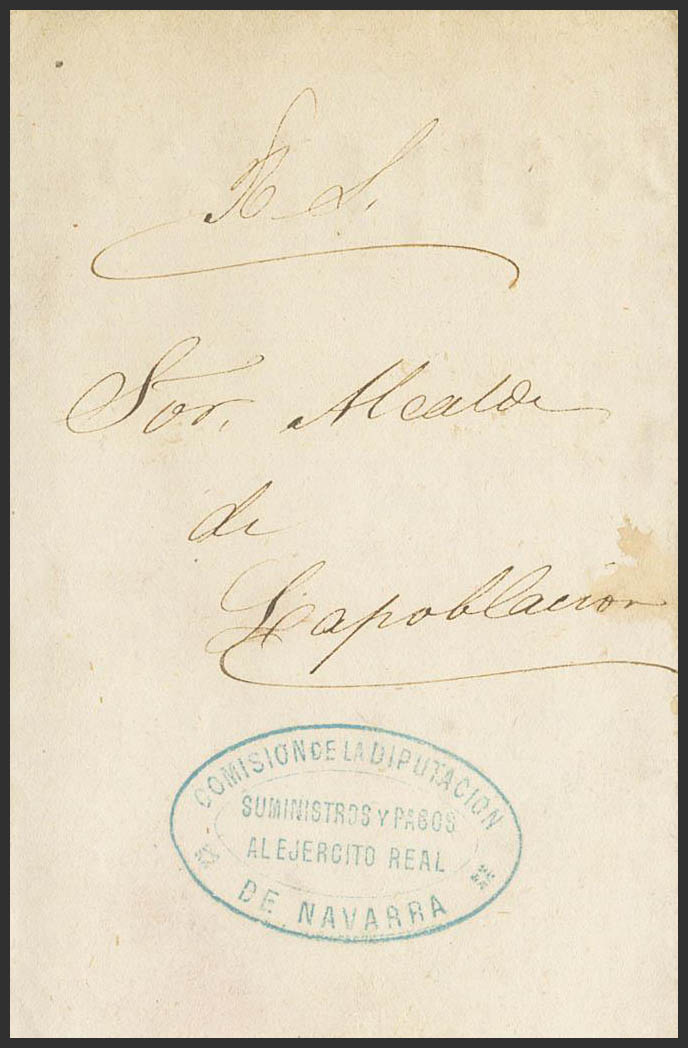 R. S.
Sor. Alcalde
de
Lapoblacion
COMISION DE LA DIPUTACION
SUMINISTROS Y PAGOS
AL EJERCITO REAL
DE NAVARRA